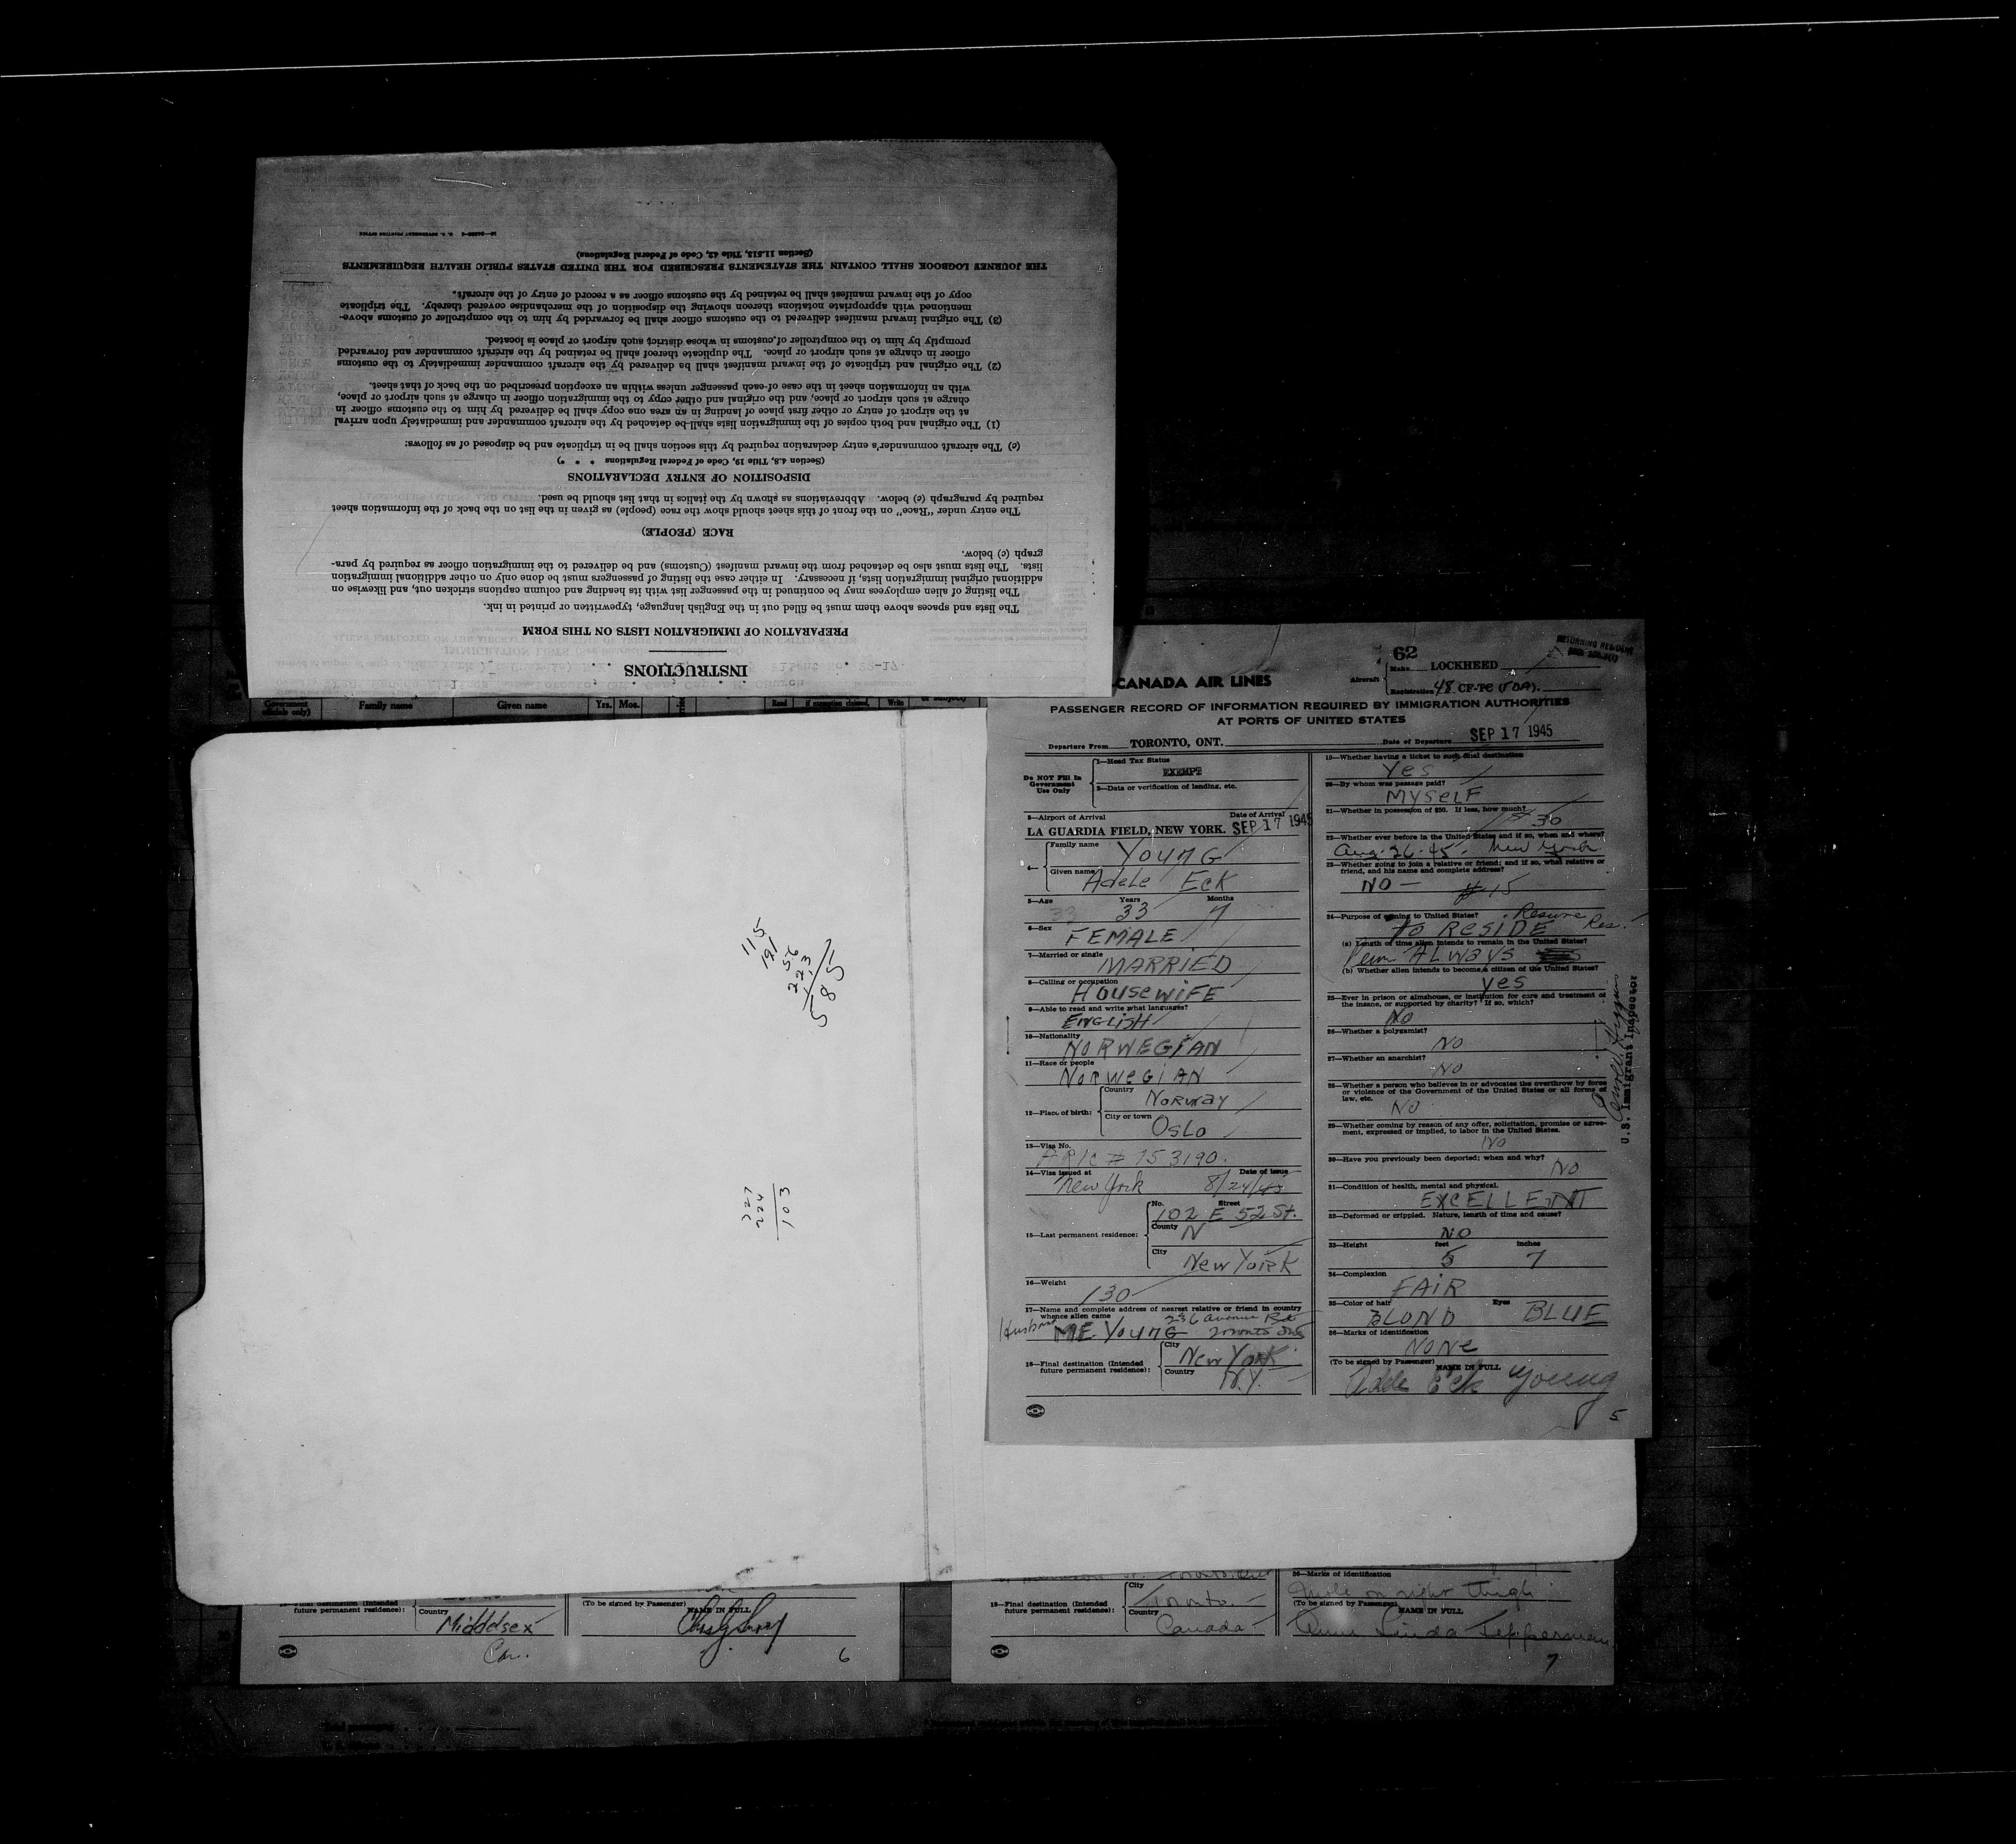 INSTRUCTIONS
PREPARATION OF IMMIGRATION LISTS ON THIS FORM
The lists and spaces above them must be filled out in the English language, typewritten or printed in ink.
The listing of alien employees may be continued in the passenger list with its heading and column captions stricken out, and likewise on
additional original immigration lists, if necessary. In either case the listing of passengers must be done only on other additional immigration
lists. The lists must also be detached from the inward manifest (Customs) and be delivered to the immigration officer as required by para-
graph (c) below.
RACE (PEOPLE)
The entry under "Race" on the front of this sheet should show the race (people) as given in the list on the back of the information sheet
required by paragraph (c) below. Abbreviations as shown by the italics in that list should be used.
DISPOSITION OF ENTRY DECLARATIONS
(Section 4.8, Title 19, Code of Federal Regulations * * *)
(c) The aircraft commander's entry declaration required by this section shall be in triplicate and be disposed of as follows:
(1) The original and both copies of the immigration lists shall be detached by the aircraft commander and immediately upon arrival
at the airport of entry or other first place of landing in an area one copy shall be delivered by him to the customs officer in
charge at such airport or place, and the original and other copy to the immigration officer in charge at such airport or place,
with an information sheet in the case of each passenger unless within an exception prescribed on the back of that sheet.
(2) The original and triplicate of the inward manifest shall be delivered by the aircraft commander immediately to the customs
officer in charge at such airport or place. The duplicate thereof shall be retained by the aircraft commander and forwarded
promptly by him to the comptroller of customs in whose district such airport or place is located.
(3) The original inward manifest delivered to the customs officer shall be forwarded by him to the comptroller of customs above-
mentioned with appropriate notations thereon showing the disposition of the merchandise covered thereby. The triplicate
copy of the inward manifest shall be retained by the customs officer as a record of entry of the aircraft.
THE JOURNEY LOGBOOK SHALL CONTAIN THE STATEMENTS PRESCRIBED FOR THE UNITED STATES PUBLIC HEALTH REQUIREMENTS
(Section 11.513, Title 42, Code of Federal Regulations)
U. S. GOVERNMENT PRINTING OFFICE
Government officials only)
Family name
Given name
Yrs. Mos.
Read
if exemption claimed,
Write
115
191
56
223
585
327
224
103
RETURNING RESIDENT
62
CANADA AIR LINES
Aircraft
Make LOCKHEED
Registration 48 CF-TC (TDA).
PASSENGER RECORD OF INFORMATION REQUIRED BY IMMIGRATION AUTHORITIES
AT PORTS OF UNITED STATES
Departure From TORONTO, ONT.
Date of Departure SEP 17 1945
Do NOT Fill In
Government
Use Only
1—Head Tax Status
EXEMPT
2—Data or verification of landing, etc.
3—Airport of Arrival
Date of Arrival
LA GUARDIA FIELD, NEW YORK. SEP 17 1945
4—
Family name YOUNG
Given name Adele Eck
5—Age
Years 33
Months 7
6—Sex
FEMALE
7—Married or single
MARRIED
8—Calling or occupation
HOUSEWIFE
9—Able to read and write what languages?
ENGLISH
10—Nationality
NORWEGIAN
11—Race or people
NORWEGIAN
12—Place of birth:
Country NORWAY
City or town OSLO
13—Visa No.
ARIC # 753190.
14—Visa issued at
Date of issue
New York 8/24/45
15—Last permanent residence:
No. Street
102 E 52 St.
County N
City New York
16—Weight
130
17—Name and complete address of nearest relative or friend in country
whence alien came
Husband ME. YOUNG 236 Avenue Rd Toronto Ont
18—Final destination (Intended
future permanent residence):
City New York
Country N.Y.
19—Whether having a ticket to such final destination
Yes
20—By whom was passage paid?
MYSELF
21—Whether in possession of $50. If less, how much?
$ 30
22—Whether ever before in the United States and if so, when and where?
Aug. 26-45. New York
23—Whether going to join a relative or friend; and if so, what relative or
friend, and his name and complete address?
NO — # 15
24—Purpose of coming to United States? Resume Res.
to RESIDE
(a) Length of time alien intends to remain in the United States?
Perm ALWAYS
(b) Whether alien intends to become a citizen of the United States?
yes
25—Ever in prison or almshouse, or institution for care and treatment of
the insane, or supported by charity? If so, which?
No
26—Whether a polygamist?
NO
27—Whether an anarchist?
NO
28—Whether a person who believes in or advocates the overthrow by force
or violence of the Government of the United States or all forms of
law, etc.
NO
29—Whether coming by reason of any offer, solicitation, promise or agree-
ment, expressed or implied, to labor in the United States.
NO
30—Have you previously been deported; when and why?
NO
31—Condition of health, mental and physical.
EXCELLENT
32—Deformed or crippled. Nature, length of time and cause?
NO
33—Height
feet 5
inches 7
34—Complexion
FAIR
35—Color of hair BLOND
Eyes BLUE
36—Marks of identification
NONE
(To be signed by Passenger)
NAME IN FULL
Adele Eck Young
5
U.S. Immigrant Inspector
final destination (Intended
future permanent residence):
Country Middlesex
Con.
(To be signed by Passenger)
NAME IN FULL
6
18—Final destination (Intended
future permanent residence):
City Toronto.
Country Canada
36—Marks of identification
mole on right thigh
(To be signed by Passenger)
NAME IN FULL
Linda Tepperman.
7